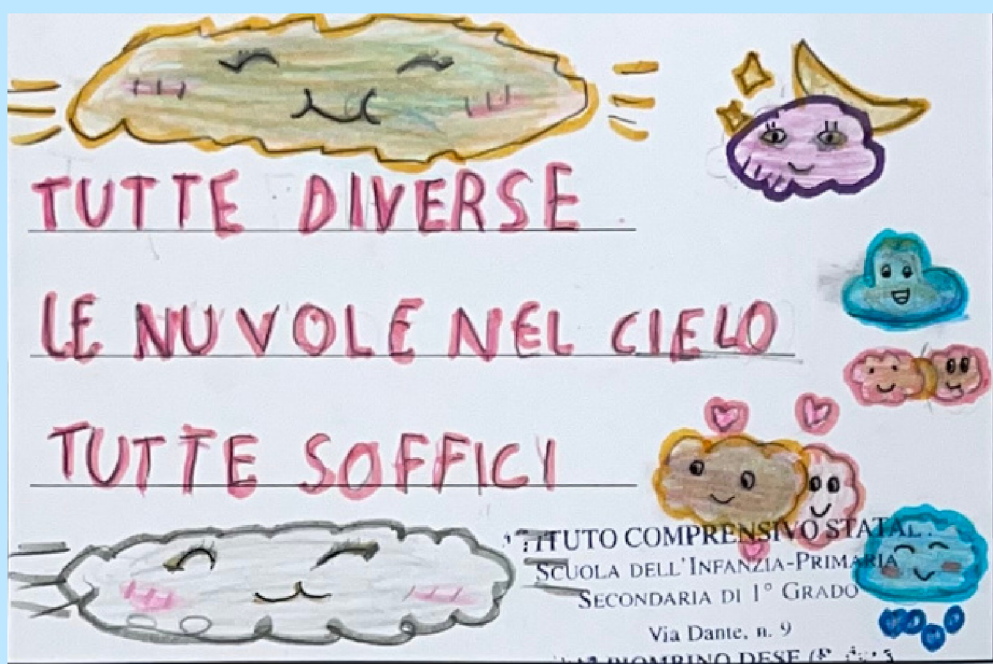 TUTTE DIVERSE
LE NUVOLE NEL CIELO
TUTTE SOFFICI
COMPRENSIVO
SCUOLA DELL'INFANZIA-PRIMARIA
SECONDARIA DI 1° GRADO
Via Dante, n. 9
PIOMBINO DESE